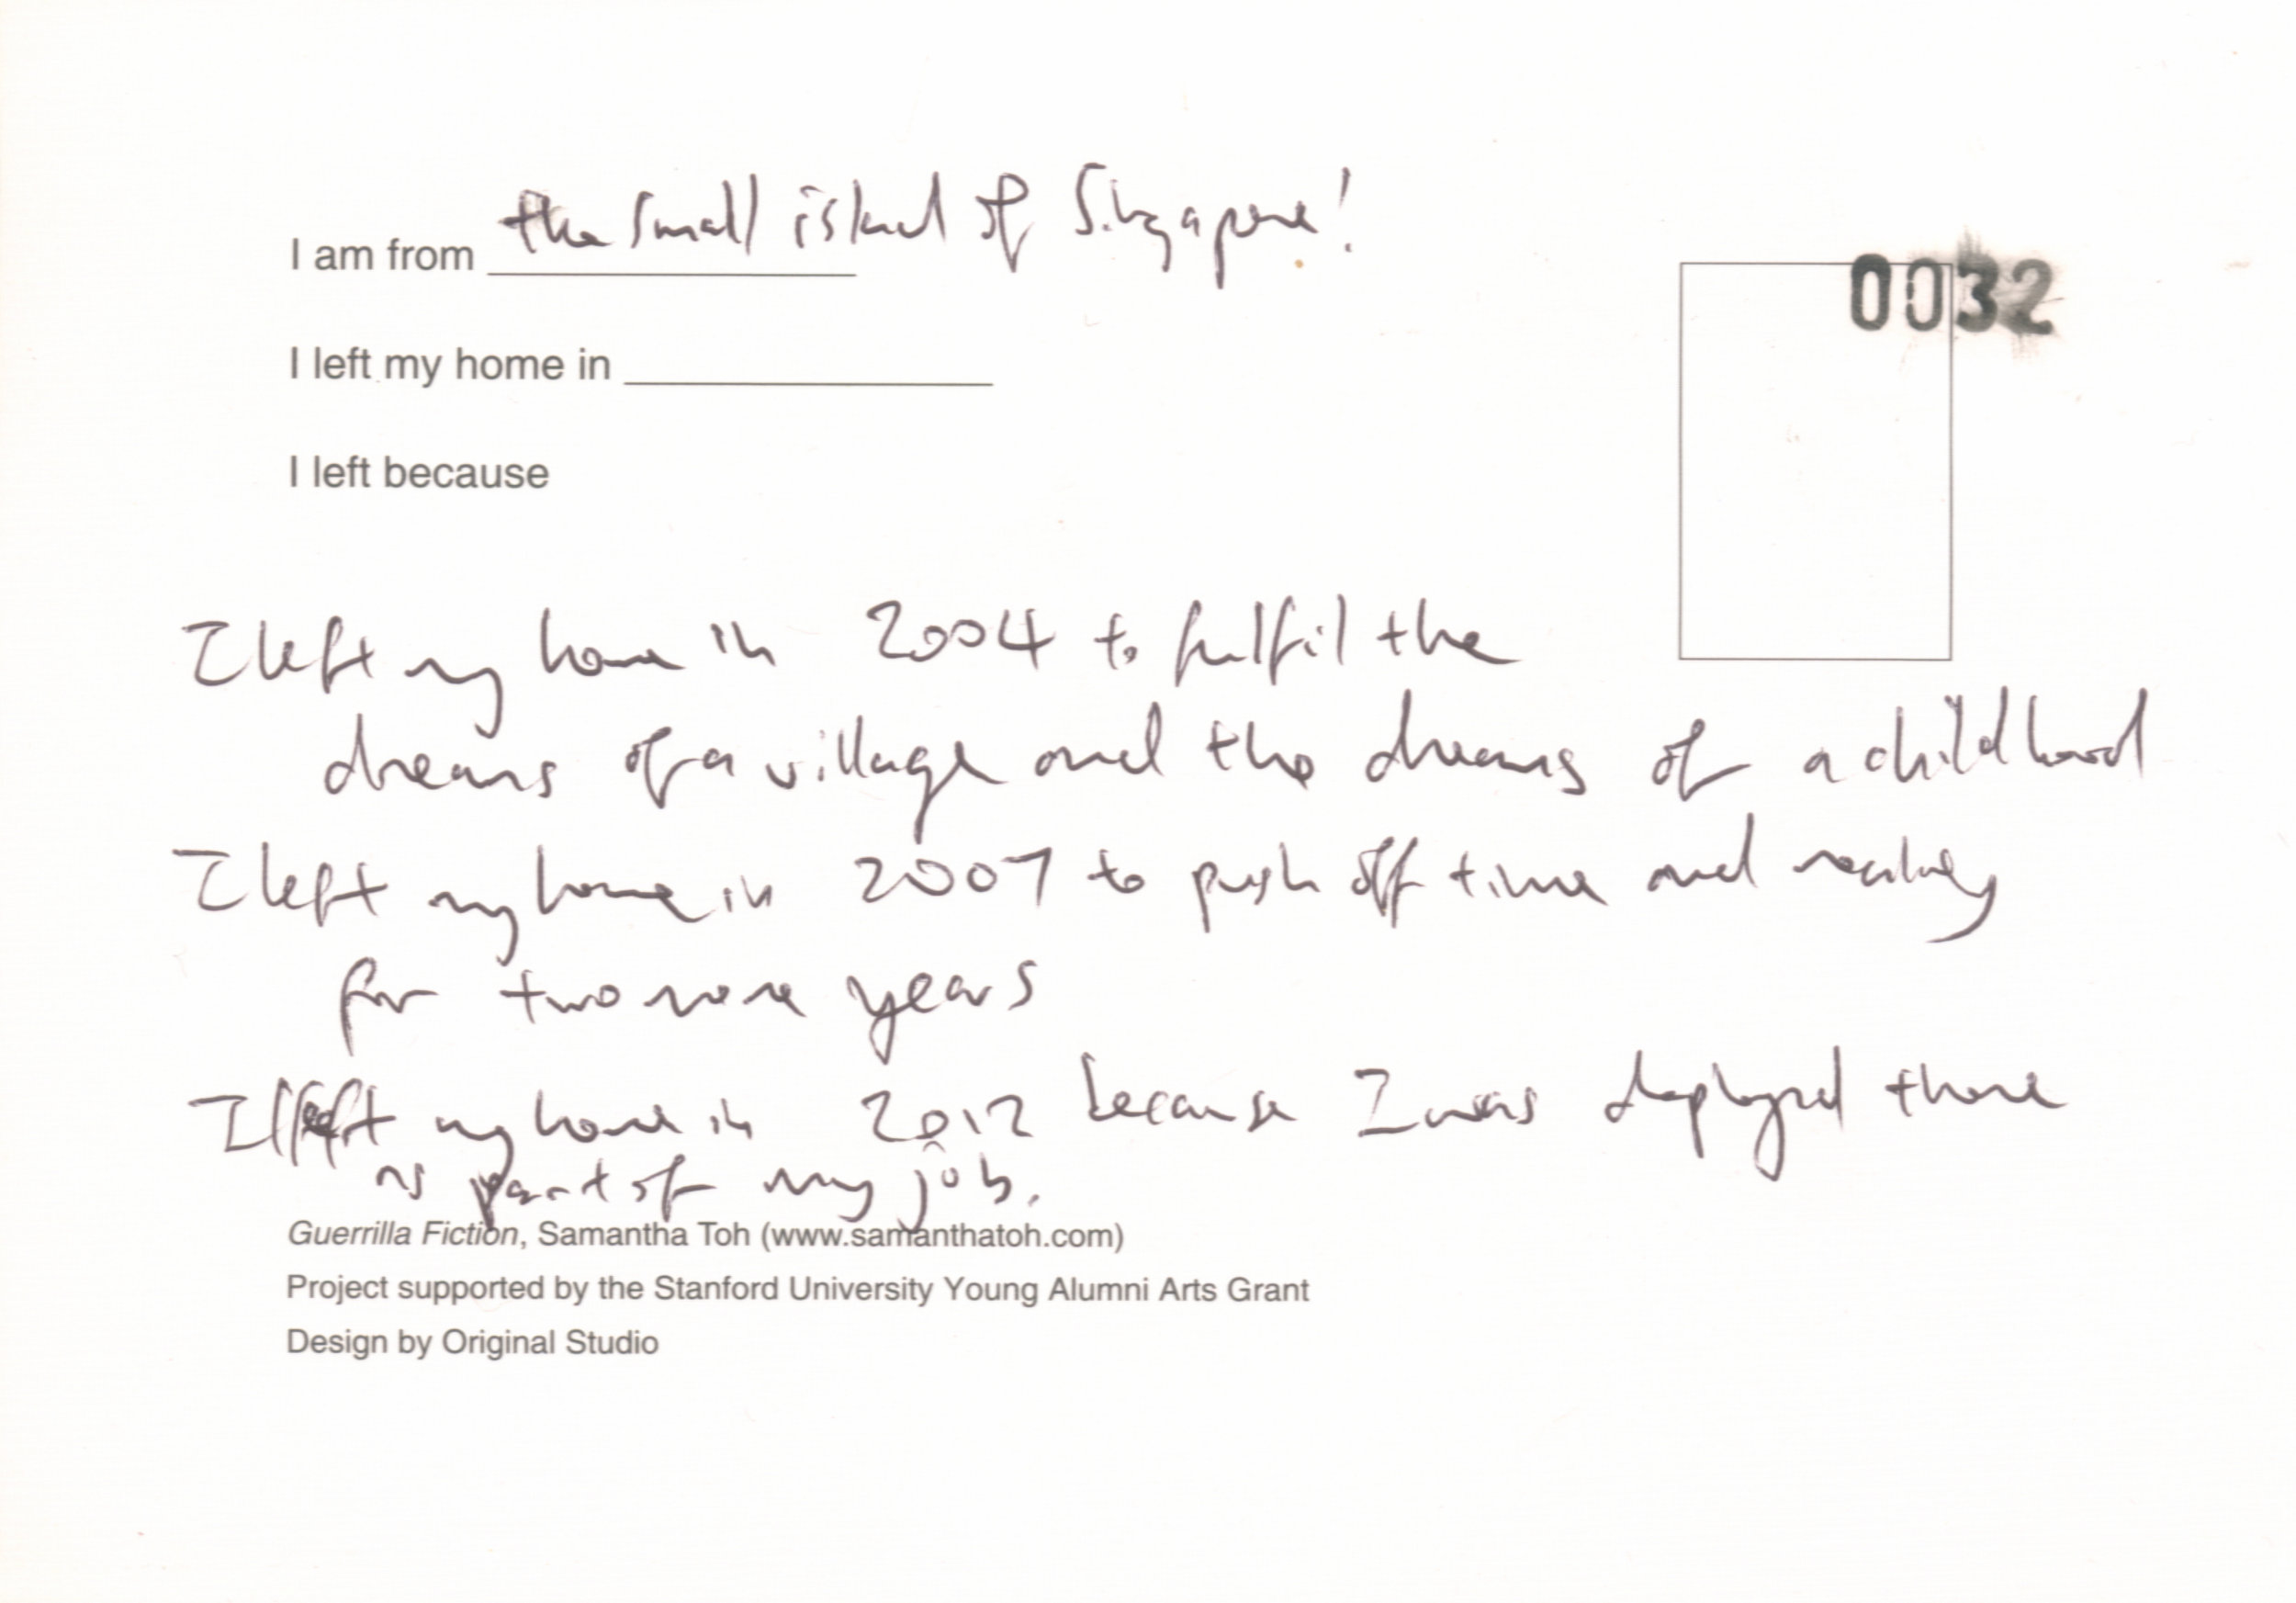 I am from the small island of Singapore!
0032
I left my home in
I left because
I left my home in 2004 to fulfil the
dreams of a village and the dreams of a childhood
I left my home in 2007 to push off time and reality
for two more years
I left my home in 2012 because I was deployed there
as part of my job.
Guerrilla Fiction, Samantha Toh (www.samanthatoh.com)
Project supported by the Stanford University Young Alumni Arts Grant
Design by Original Studio